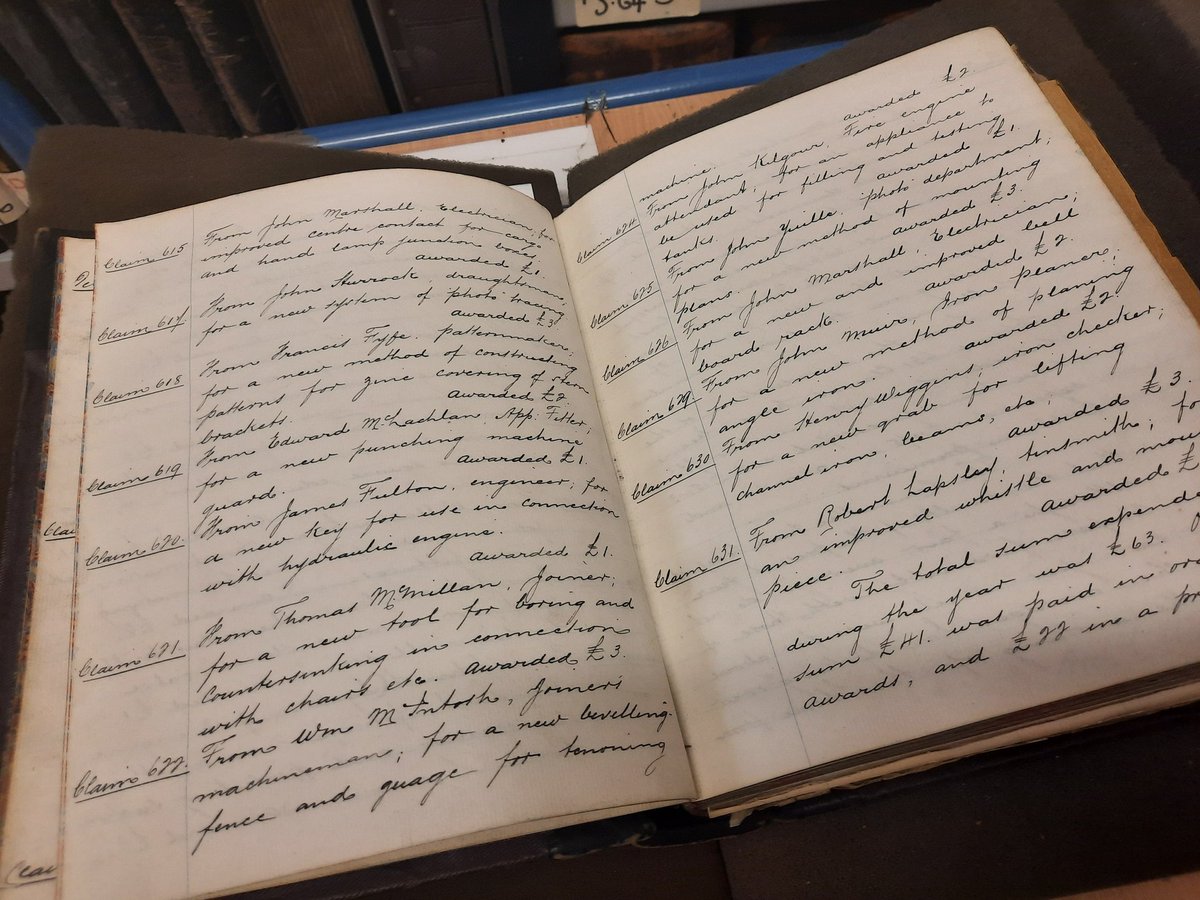 Claim 615
From John Marshall, Electrician; for
improved centre contact for cargo
and hand lamp junction boxes.
awarded £1.
Claim 617
From John Sturrock, draughtsman,
for a new system of photo tracing
awarded £3
Claim 618
From Francis Fyfe, patternmaker;
for a new method of constructing
patterns for zinc covering of stern
brackets.
awarded £2.
Claim 619
From Edward McLachlan, App: Fitter;
for a new punching machine
guard.
awarded £1.
Claim 620.
From James Fulton, engineer; for
a new key for use in connection
with hydraulic engine.
awarded £1.
Claim 621.
From Thomas McMillan, Joiner;
for a new tool for boring and
countersinking in connection
with chairs etc. awarded £3.
Claim 622.
From Wm McIntosh, Joiners
machineman; for a new bevelling
fence and guage for tenoning
machine. awarded £2.
Claim 624
From John Kilgour, Fire engine
attendant; for an appliance to
be used for filling and testing
tanks. awarded £1.
Claim 625
From John Yuille, photo department;
for a new method of mounting
plans. awarded £3.
Claim 626
From John Marshall, Electrician;
for a new and improved bell
board rack. awarded £2.
Claim 629
From John Muir, Iron planer;
for a new method of planing
angle iron. awarded £2.
Claim 630
From Henry Wiggins, iron checker;
for a new grab for lifting
channel iron, beams, etc.
awarded £3.
Claim 631.
From Robert Lapsley, tinsmith; fo
an improved whistle and mou
piece. awarded £
The total sum expende
during the year was £63.
sum £41. was paid in ord
awards, and £22 in a pr